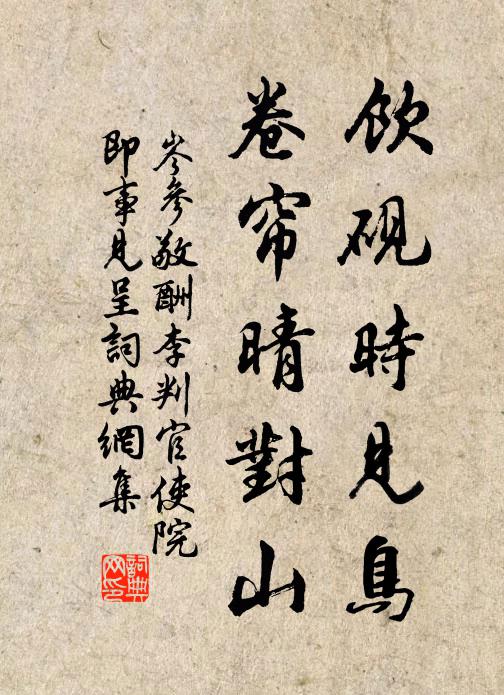 飲硯時見鳥
卷帘晴對山
岑參敬酬李判官使院
即事見呈詞典網集
詞典
网印